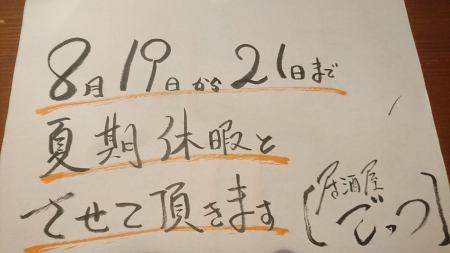 8月19日から21日まで
夏期休暇と
させて頂きます
居酒屋
ごっつ